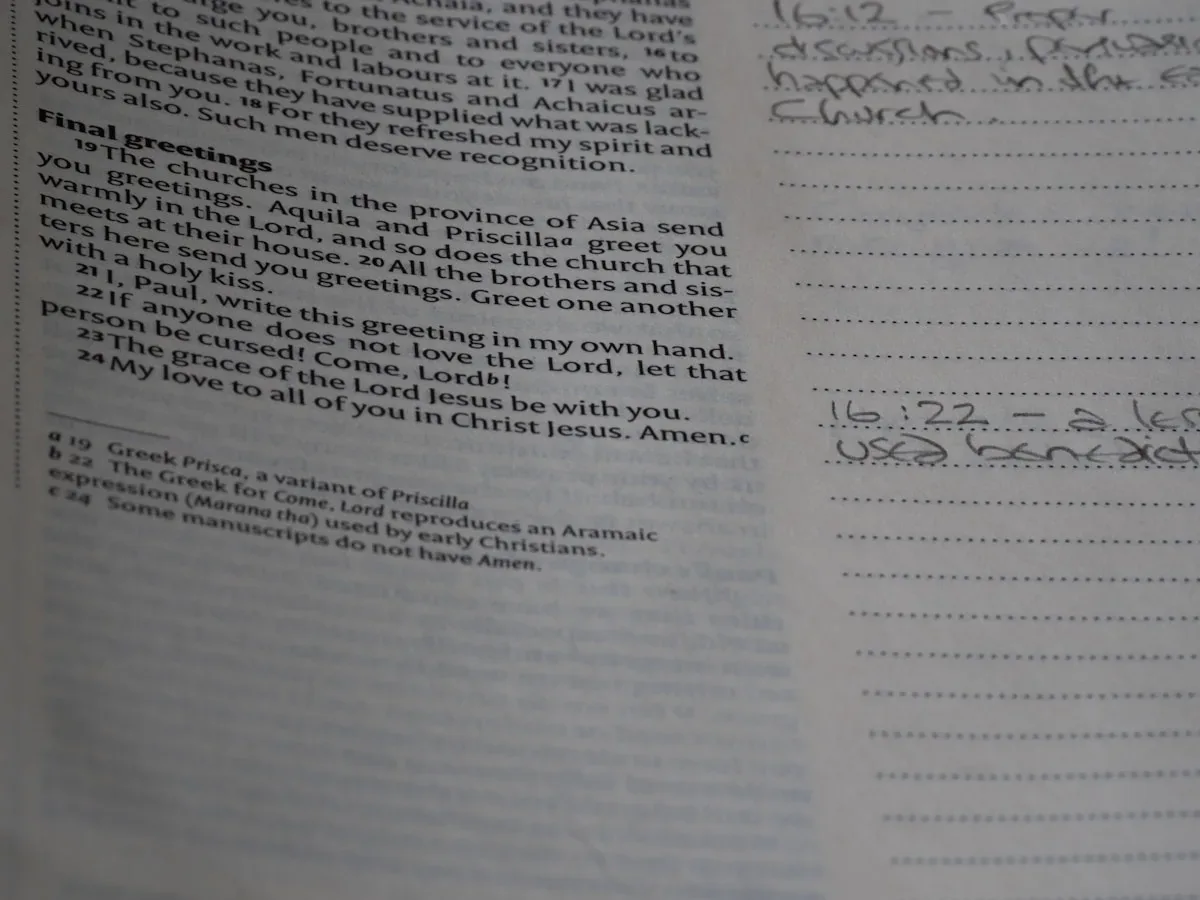 Achaia, and they have
to the service of the Lord's
you, brothers and sisters, 16 to
to such people and to everyone who
joins in the work and labours at it. 17 I was glad
when Stephanas, Fortunatus and Achaicus ar-
rived, because they have supplied what was lack-
ing from you. 18 For they refreshed my spirit and
yours also. Such men deserve recognition.
Final greetings
19 The churches in the province of Asia send
you greetings. Aquila and Priscilla a greet you
warmly in the Lord, and so does the church that
meets at their house. 20 All the brothers and sis-
ters here send you greetings. Greet one another
with a holy kiss.
21 I, Paul, write this greeting in my own hand.
22 If anyone does not love the Lord, let that
person be cursed! Come, Lord b!
23 The grace of the Lord Jesus be with you.
24 My love to all of you in Christ Jesus. Amen. c
a 19 Greek Prisca, a variant of Priscilla
b 22 The Greek for Come, Lord reproduces an Aramaic
expression (Marana tha) used by early Christians.
c 24 Some manuscripts do not have Amen.
16:12 – Proper
discussions,
happened in the
Church.
16:22 – a
used